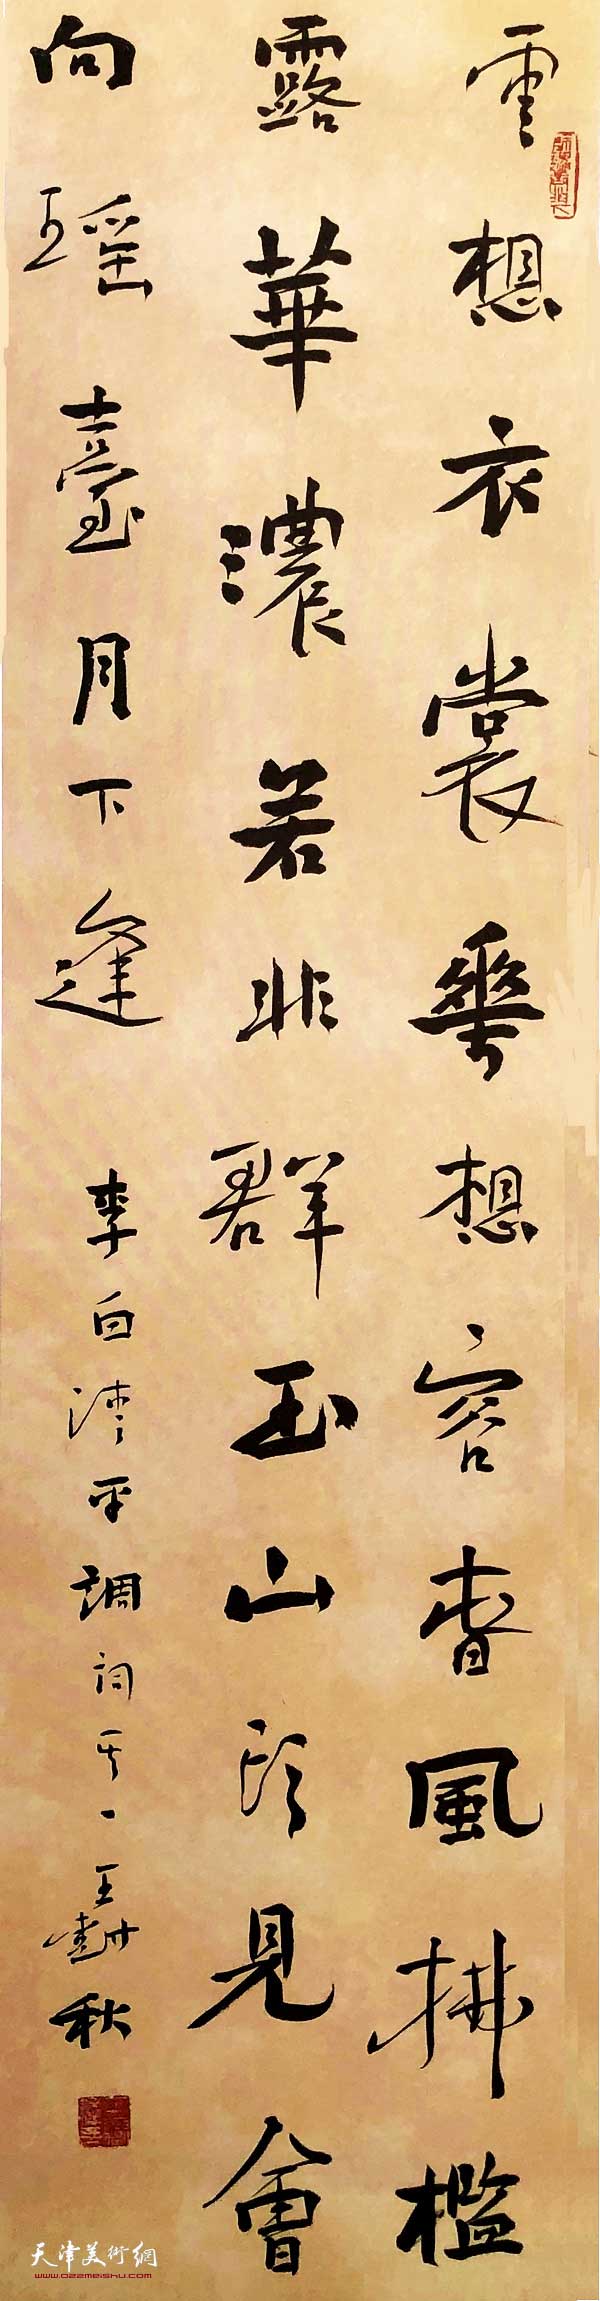 雲想衣裳華想容春風拂檻
露華濃若非群玉山頭見會
向瑤臺月下逢 李白清平調詞其一 王樹秋
天津美術網
www.022meishu.com